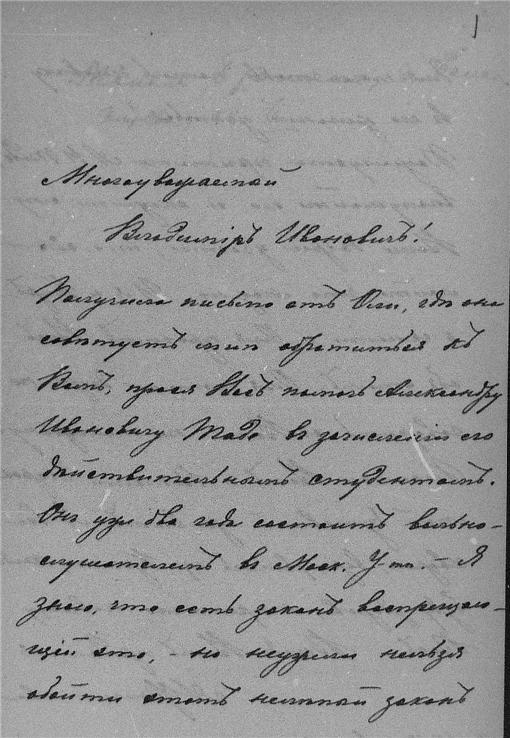 1
Многоуважаемый
Владимiръ Ивановичъ!
Получила письмо отъ Оли, гдѣ она
совѣтуетъ мнѣ обратиться къ
Вамъ, прося Васъ помочь Александру
Ивановичу Таде въ зачисленiи его
дѣйствительнымъ студентомъ.
Онъ уже два года состоитъ вольно-
слушателемъ въ Моск. У-тѣ. – Я
знаю, что есть законъ воспрещаю-
щiй это, – но неужели нельзя
обойти этотъ нелѣпый законъ